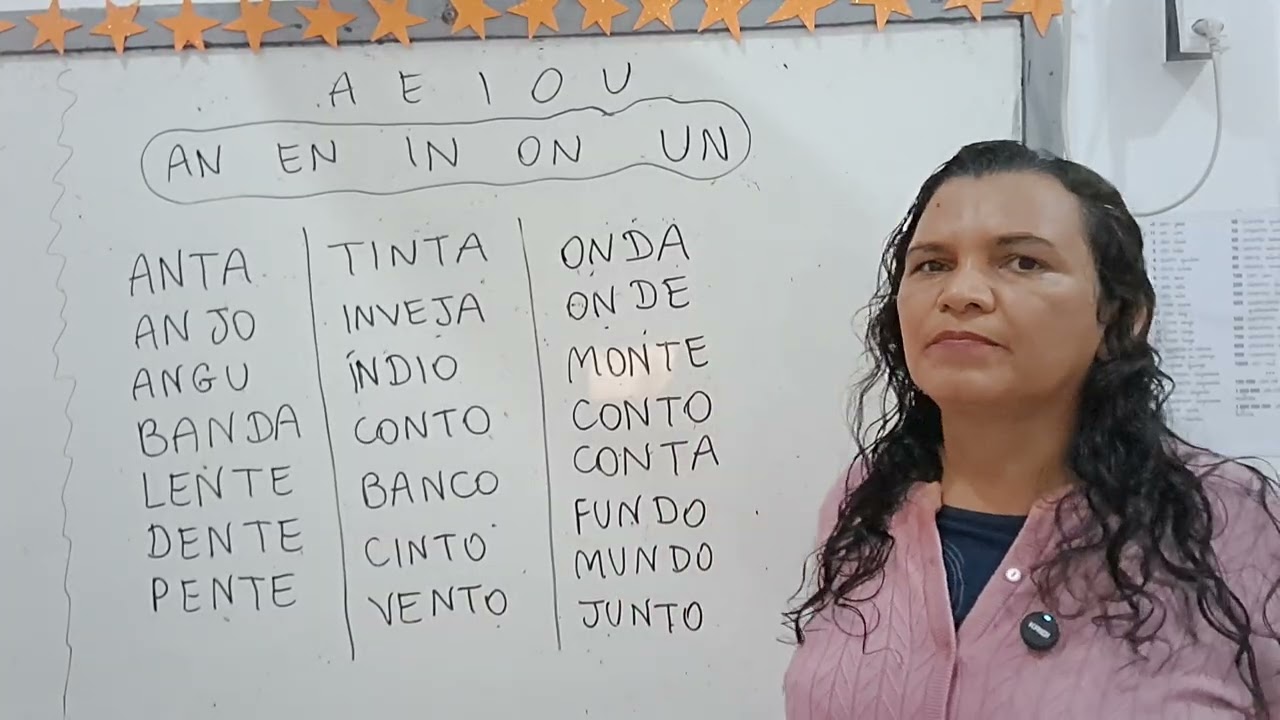 A E I O U
AN EN IN ON UN
ANTA
ANJO
ANGU
BANDA
LENTE
DENTE
PENTE
TINTA
INVEJA
ÍNDIO
CONTO
BANCO
CINTO
VENTO
ONDA
ONDE
MONTE
CONTO
CONTA
FUNDO
MUNDO
JUNTO